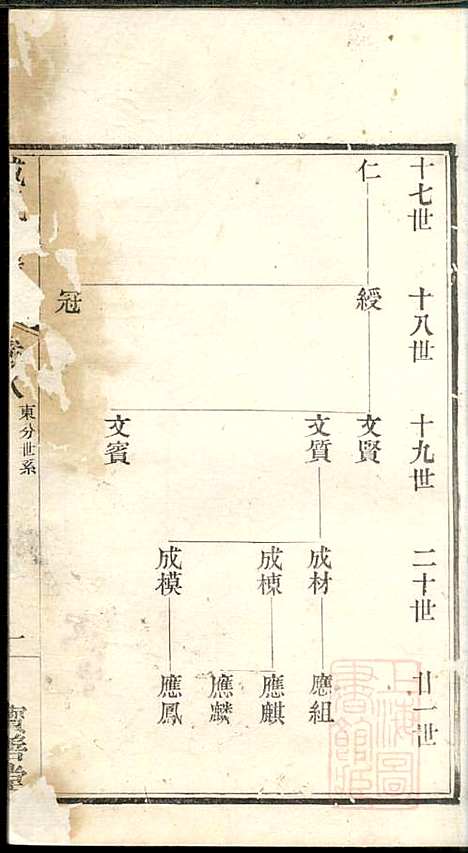 十七世
仁
十八世
綬
冠
十九世
文賢
文質
文賓
二十世
成材
成棟
成模
廿一世
應組
應麒
應麟
應鳳
卷八
東分世系
一
上海圖書館藏